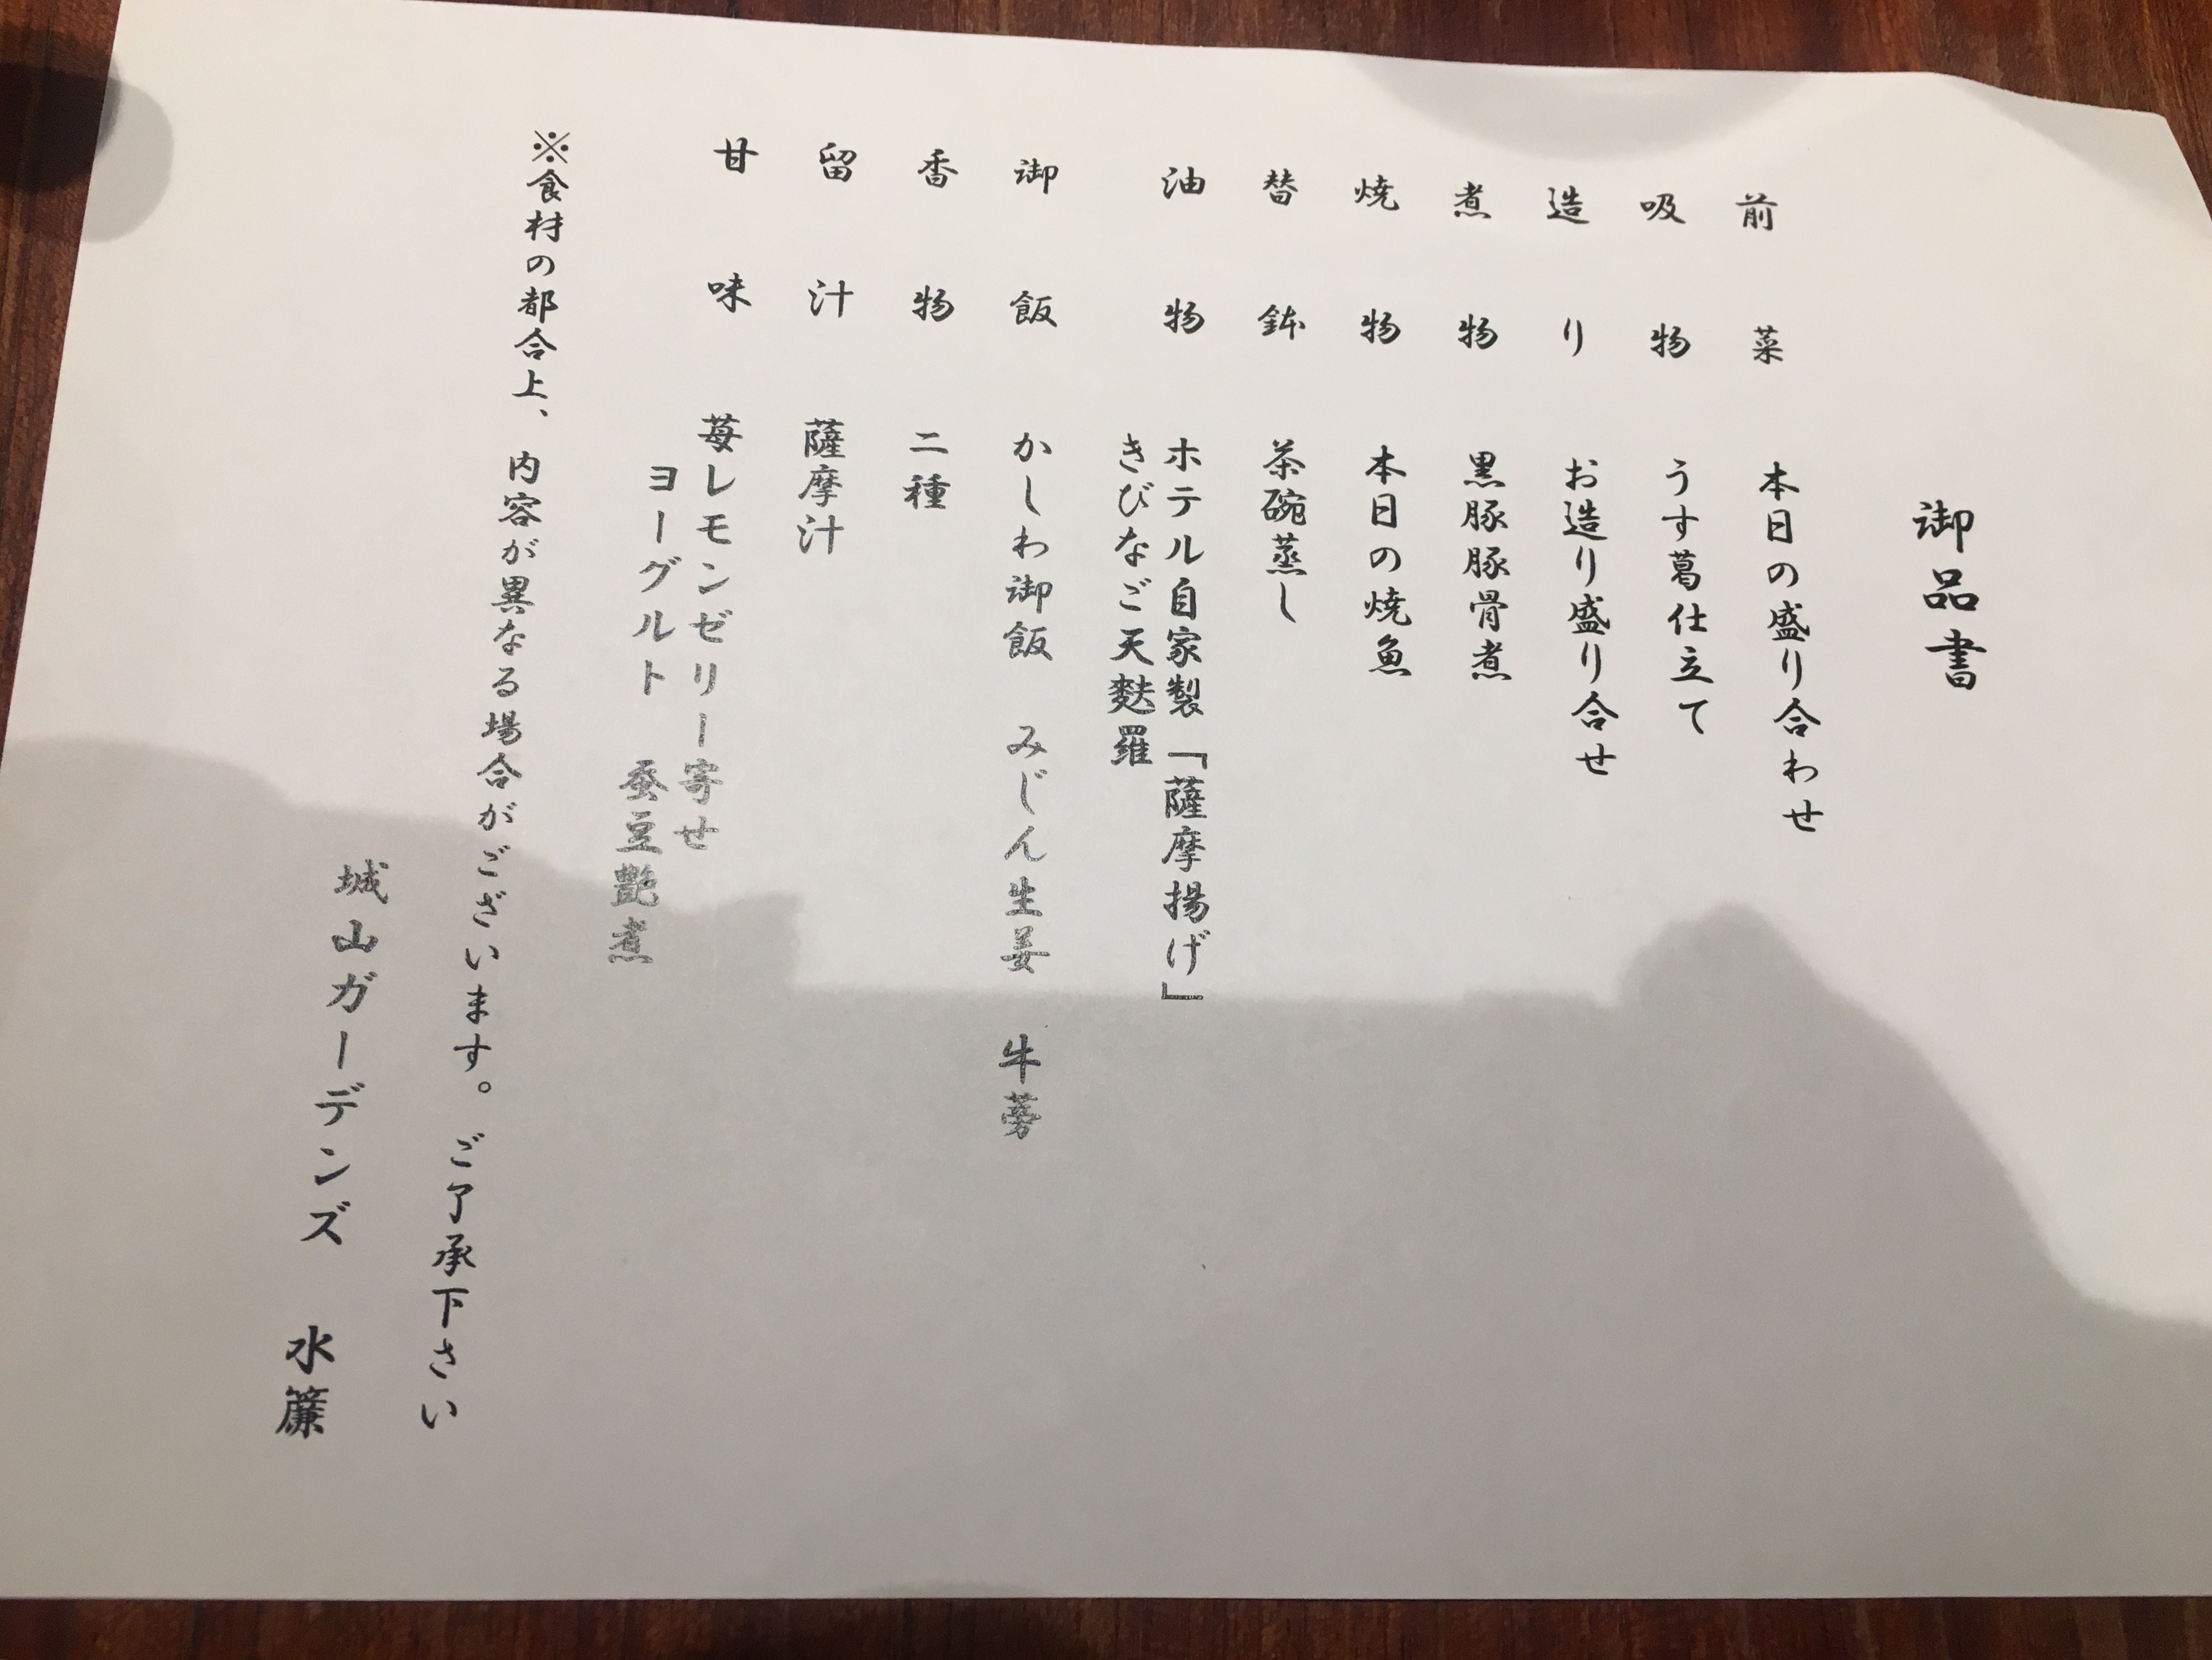 御品書
前菜　本日の盛り合わせ
吸物　うす葛仕立て
造り　お造り盛り合せ
煮物　黒豚豚骨煮
焼物　本日の焼魚
替鉢　茶碗蒸し
油物　ホテル自家製「薩摩揚げ」
きびなご天麩羅
御飯　かしわ御飯　みじん生姜　牛蒡
香物　二種
留汁　薩摩汁
甘味　苺レモンゼリー寄せ
ヨーグルト　蚕豆艶煮
※食材の都合上、内容が異なる場合がございます。ご了承下さい
城山ガーデンズ　水簾